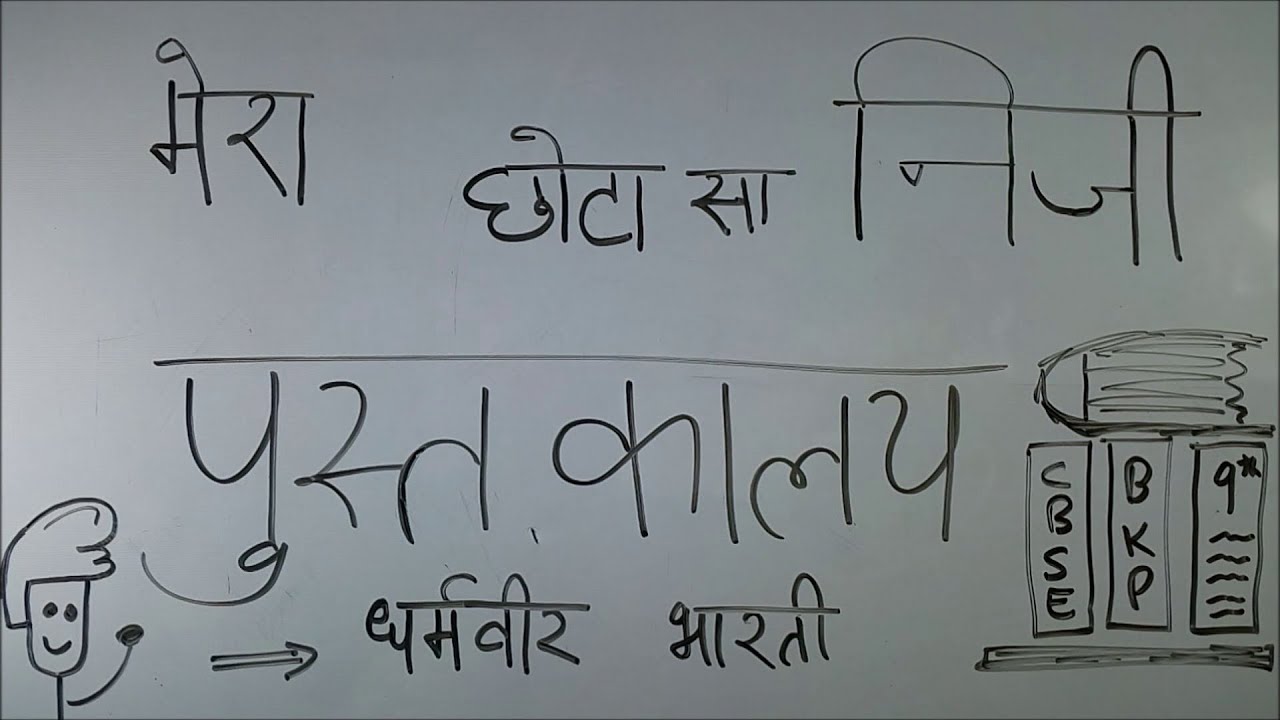 मेरा छोटा सा निजी
पुस्तकालय
CBSE BKP 9th
⇒ धर्मवीर भारती